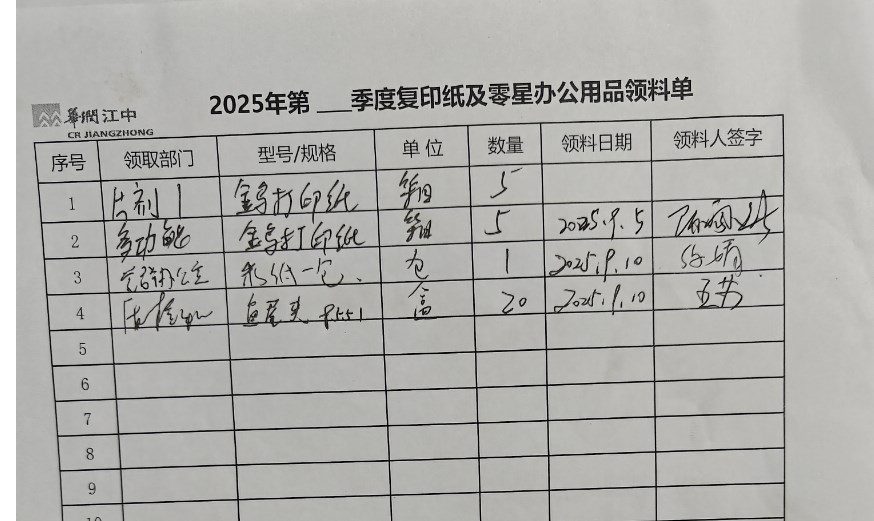 2025年第 ___季度复印纸及零星办公用品领料单
華潤江中
CR JIANGZHONG
序号 领取部门 型号/规格 单位 数量 领料日期 领料人签字
1 片剂1 打印纸 箱 5
2 多功能 打印纸 箱 5 2025.9.5
3 办公室 彩纸一包 包 1 2025.9.10
4 盒 20 2025.9.10
5
6
7
8
9
10